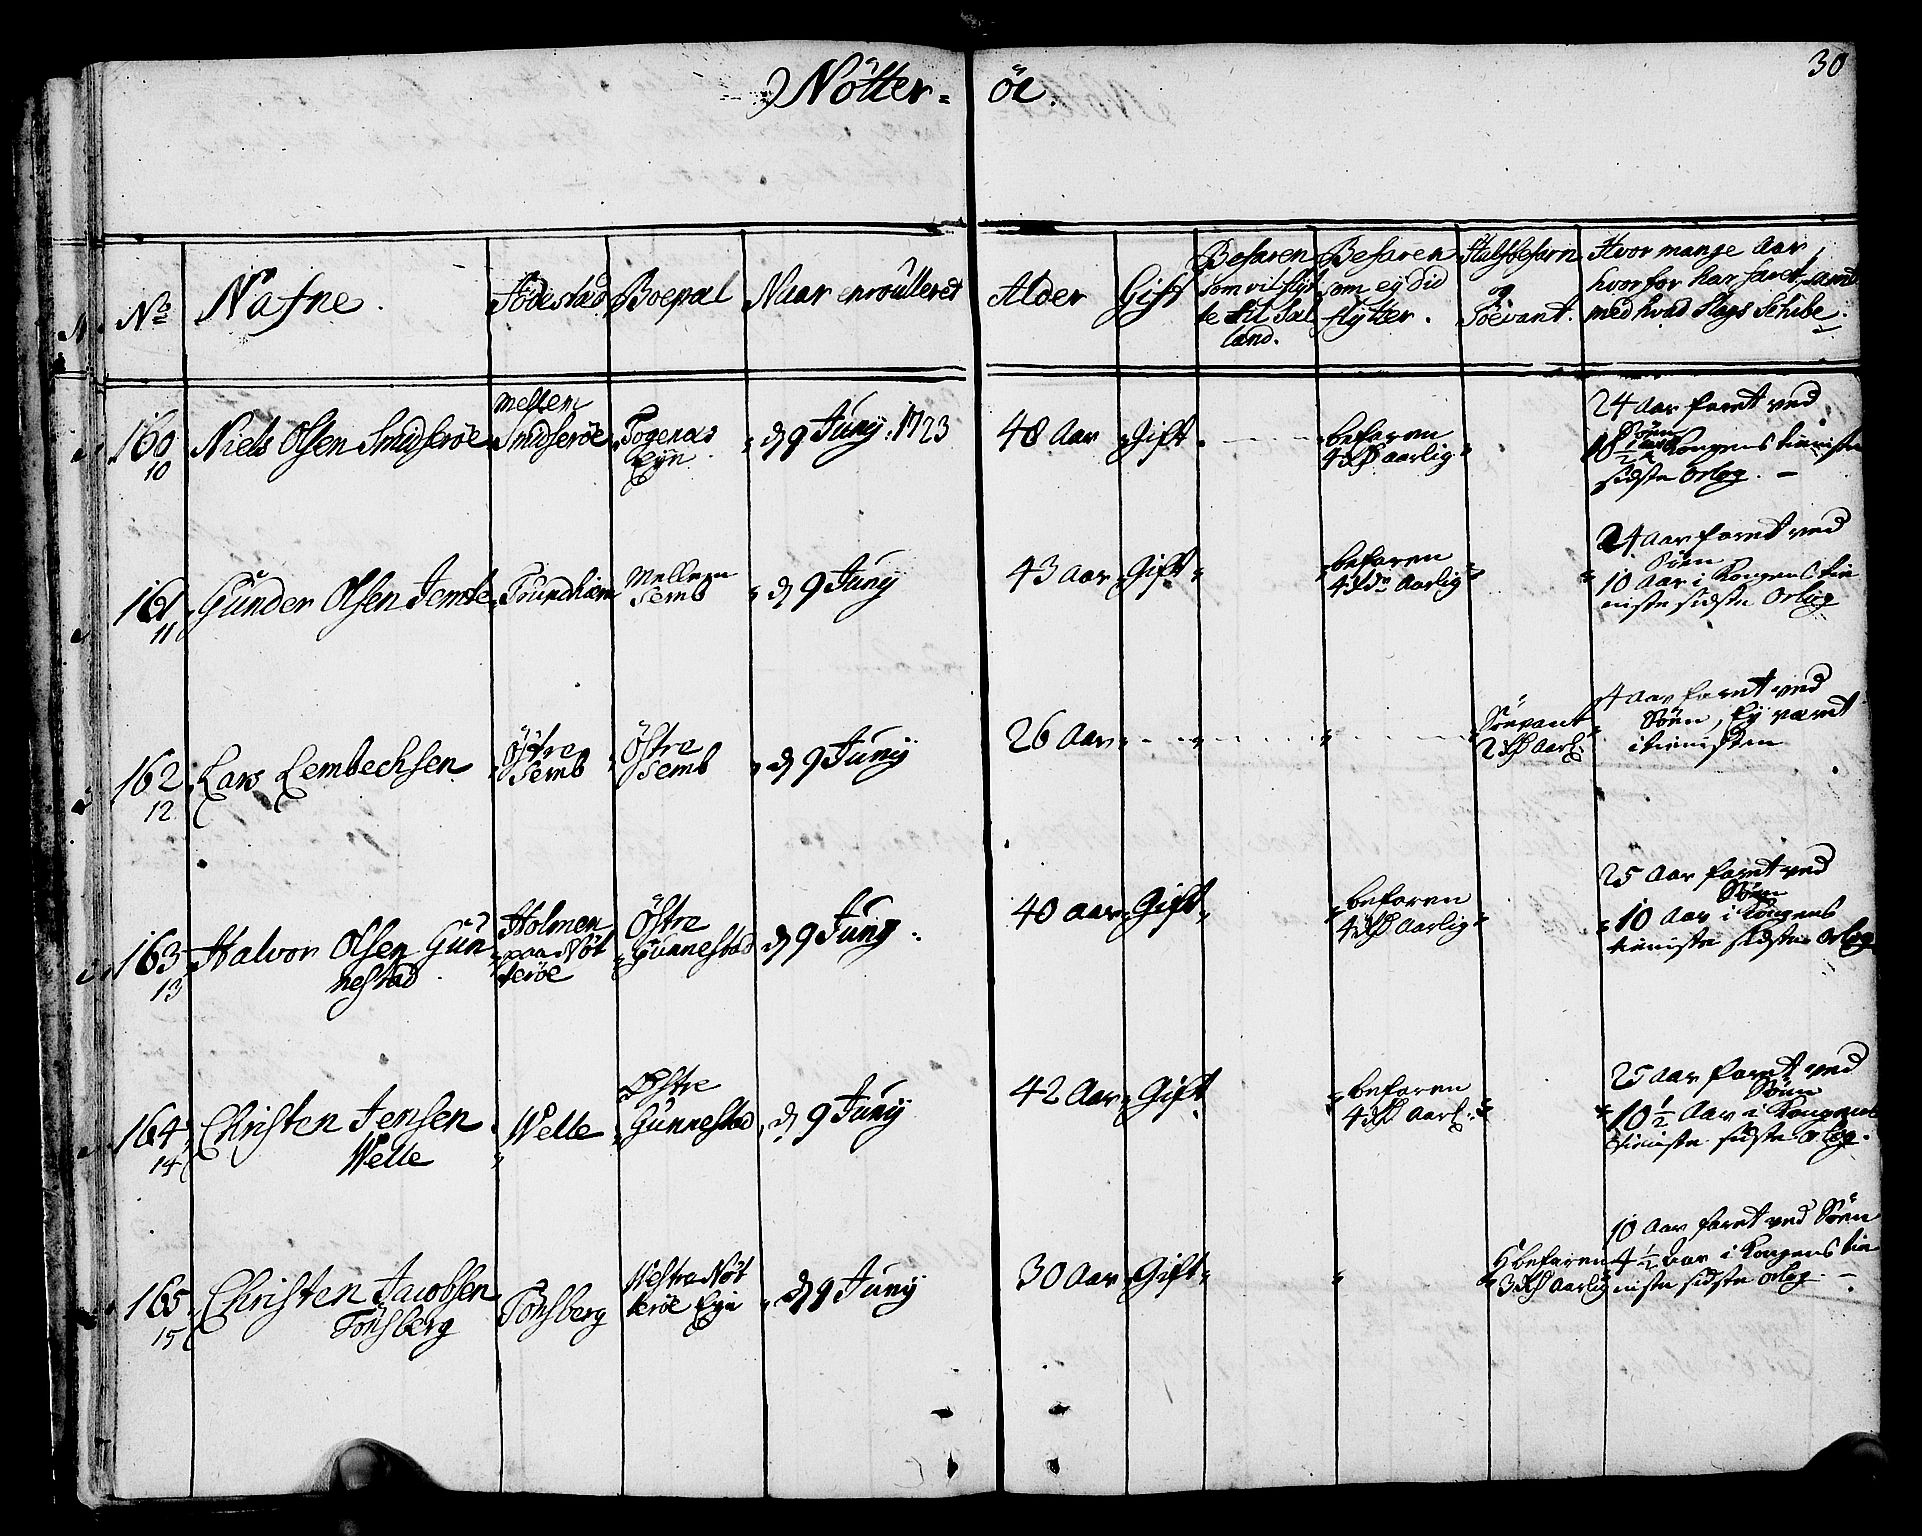 30
Nötter- öe.
No
Nafne.
Födestæd
Boepæl
Naar enroulleret
Alder
Gift
Befaren
som vil flyt
te til Sæl
land.
Befaren
som ey did
flytter.
Halfbefarn
og
Söevant.
Hvor mange Aar,
hvorfor har faret, samt
med hvad slags Schibe.
160
10
Niels Olsen Smidseröe
Mellem
Smidseröe
Eye
d 9 Juny. 1723
48 Aar
Gift
befaren
4 rd Aarlig
24 Aar faret ved
Söen
10 1/2 Aar i Kongens tieniste
sidste Orlog.
161
11
Gunder Olsen Jemte
Trundhiem
Mellem
Semb
d 9 Juny
43 Aar
Gift
befaren
4 rd Aarlig
24 Aar faret ved
Söen
10 Aar i Kongens tie
niste sidste Orlog
162
12
Lars Lembechsen
Östre
Semb
Östre
Semb
d 9 Juny
26 Aar
Söevant
2 rd Aarl.
4 Aar faret ved
Söen, Ey været
i tienisten
163
13
Halvor Olsen Gun
nestad
Holmen
paa Nöt
teröe
Östre
Gunnestad
d 9 Juny.
40 Aar
Gift
befaren
4 rd Aarlig
25 Aar faret ved
Söen
10 Aar i Kongens
tieniste sidste Orlog
164
14
Christen Jensen
Welle
Welle
Östre
Gunnestad
d 9 Juny
42 Aar
Gift
befaren
4 rd Aarl.
25 Aar faret ved
Söen
10 1/2 Aar i Kongens
tieniste sidste Orlog.
165
15
Christen Jacobsen
Tönsberg
Tönsberg
Westre Nöt
teröe Eye
d 9 Juny
30 Aar
Gift
befaren
3 rd Aarlig
10 Aar faret ved Söen
4 1/2 Aar i Kongens tie
niste sidste Orlog.